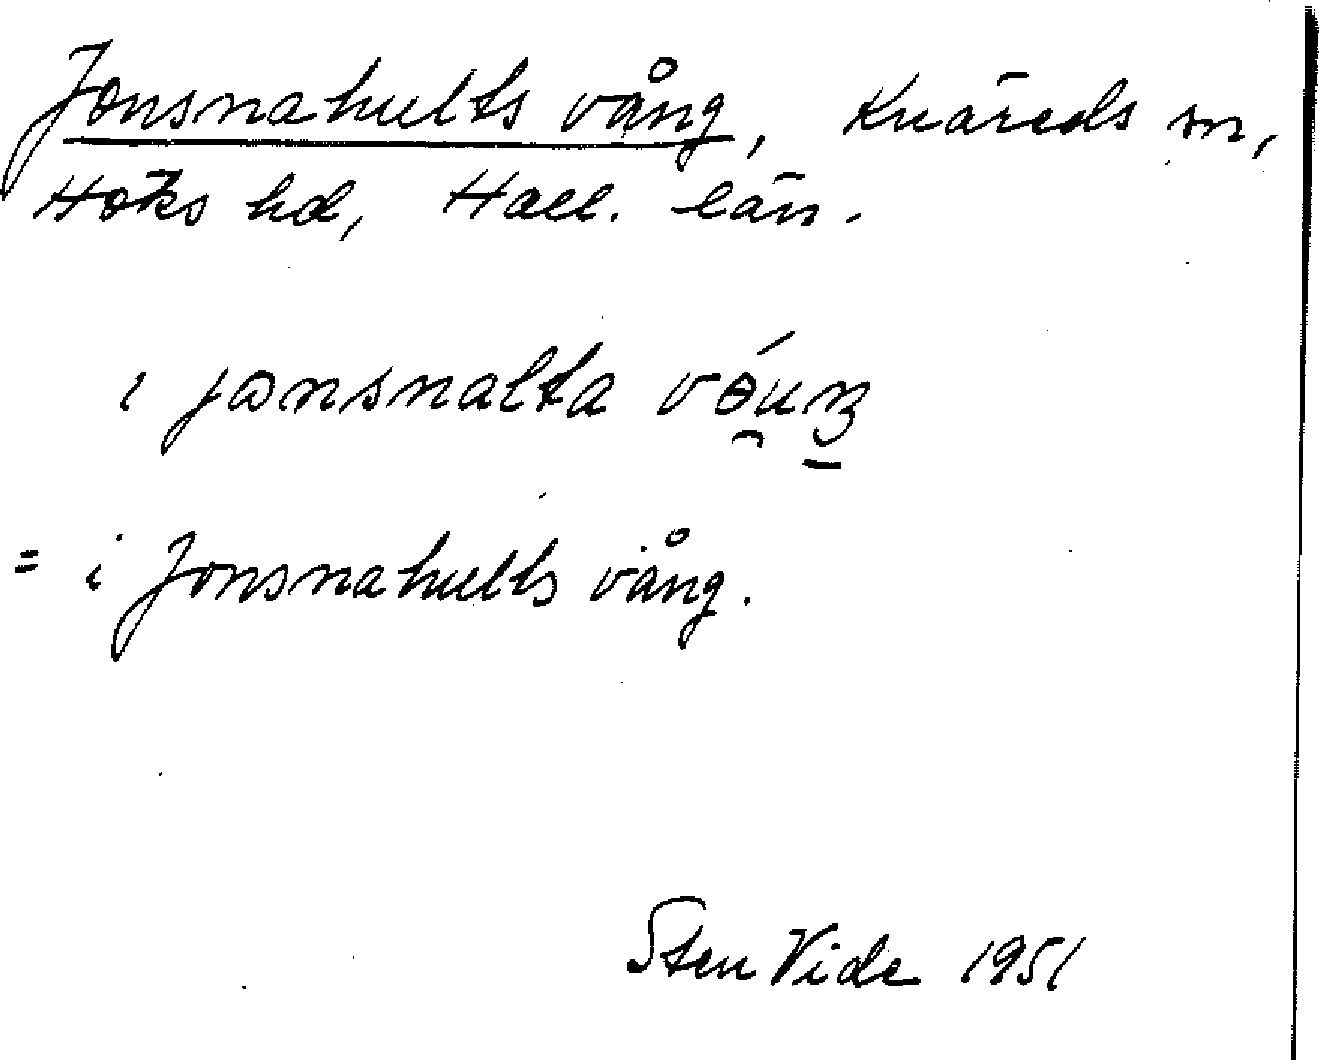 Jonsnahults vång, Knäreds sn,
Höks hd, Hall. län.
ɩ jɷnsnalta
= i Jonsnahults vång.
Sten Vide 1951